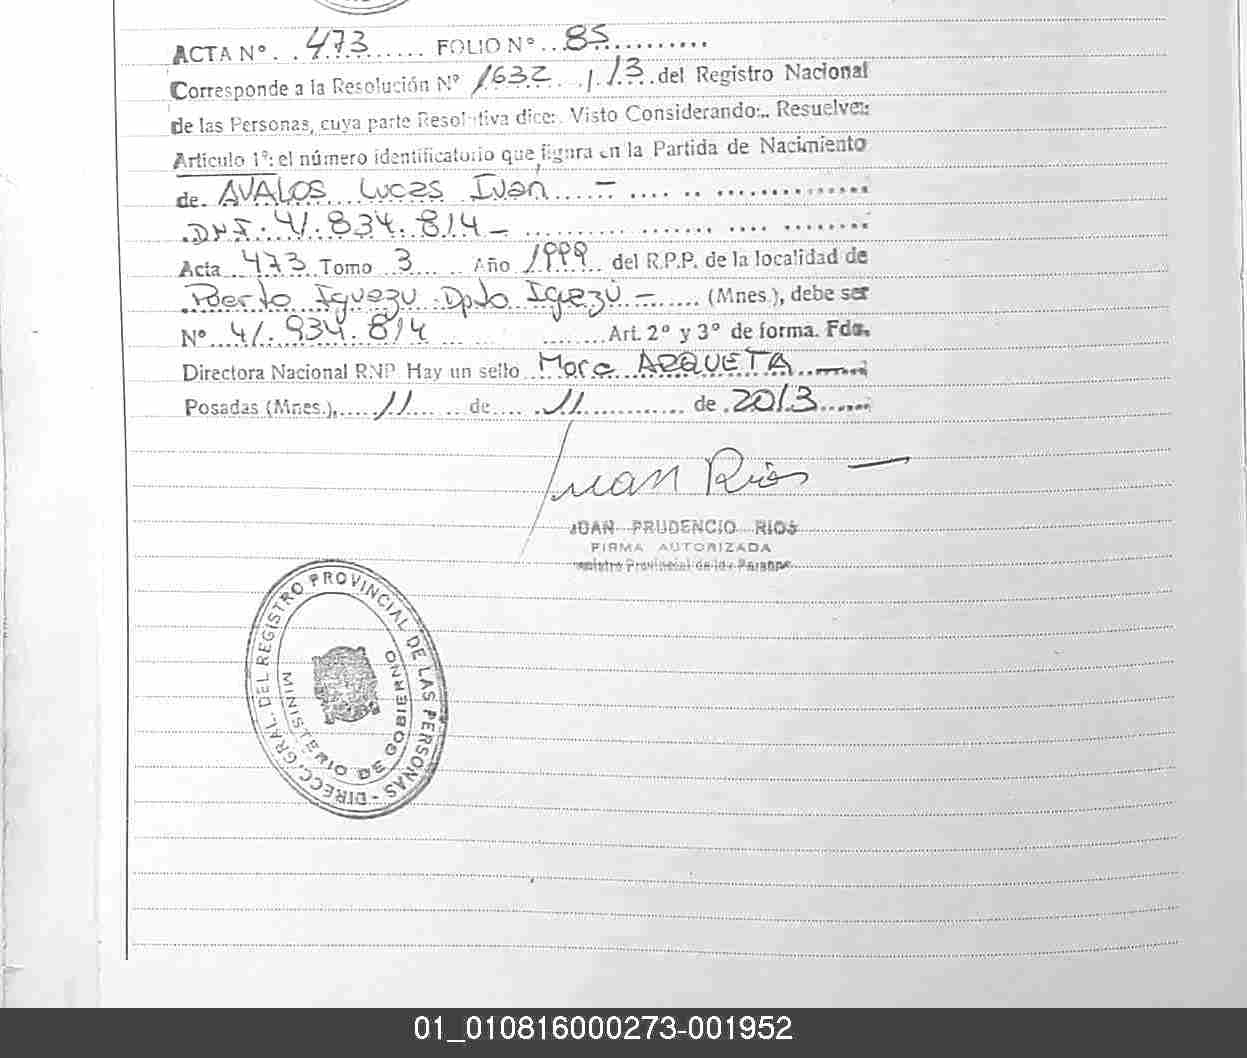 ACTA N° 473 FOLIO N° 85
Corresponde a la Resolución N° 1632 / 13 del Registro Nacional
de las Personas, cuya parte Resolutiva dice: Visto Considerando:.. Resuelve:
Artículo 1°: el número identificatorio que figura en la Partida de Nacimiento
de. AVALOS Lucas Ivan —
DNI: 41.834.814 —
Acta 473 Tomo 3 Año 1999 del R.P.P. de la localidad de
Puerto Iguazu Dpto Iguazú — (Mnes.), debe ser
N° 41.934.814 Art. 2° y 3° de forma. Fdo.
Directora Nacional RNP. Hay un sello Mora ARQUETA
Posadas (Mnes.), 11 de 11 de 2013
Juan Rios —
JUAN PRUDENCIO RIOS
FIRMA AUTORIZADA
Registro Provincial de las Personas
DIRECC. GRAL. DEL REGISTRO PROVINCIAL DE LAS PERSONAS -
MINISTERIO DE GOBIERNO
01_010816000273-001952